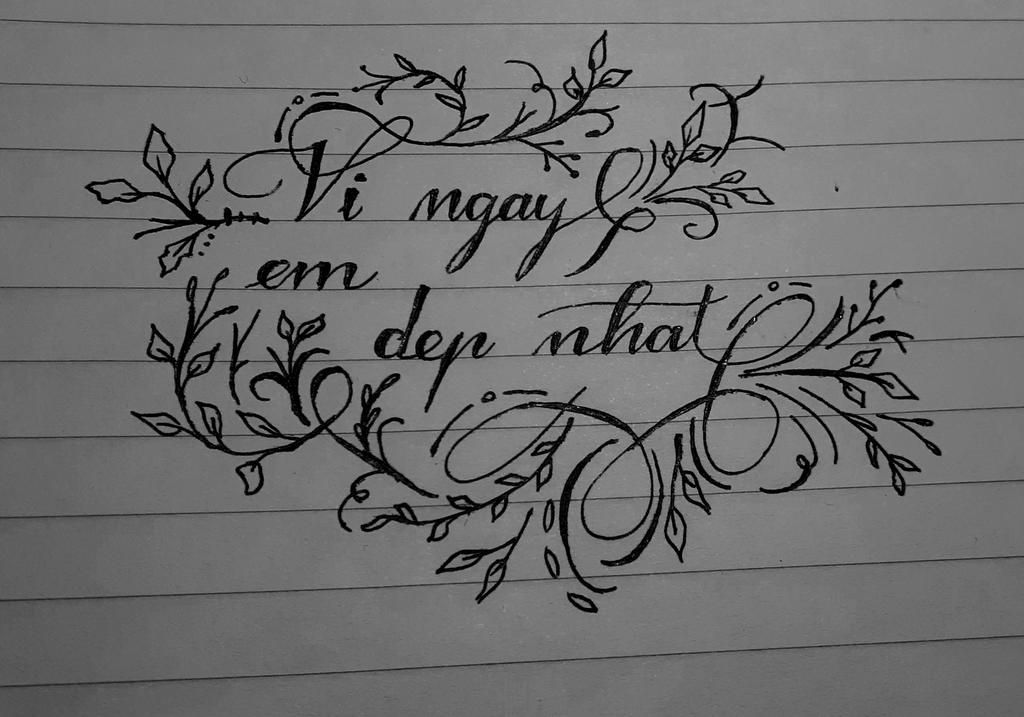 Vi ngay
em
dep nhat